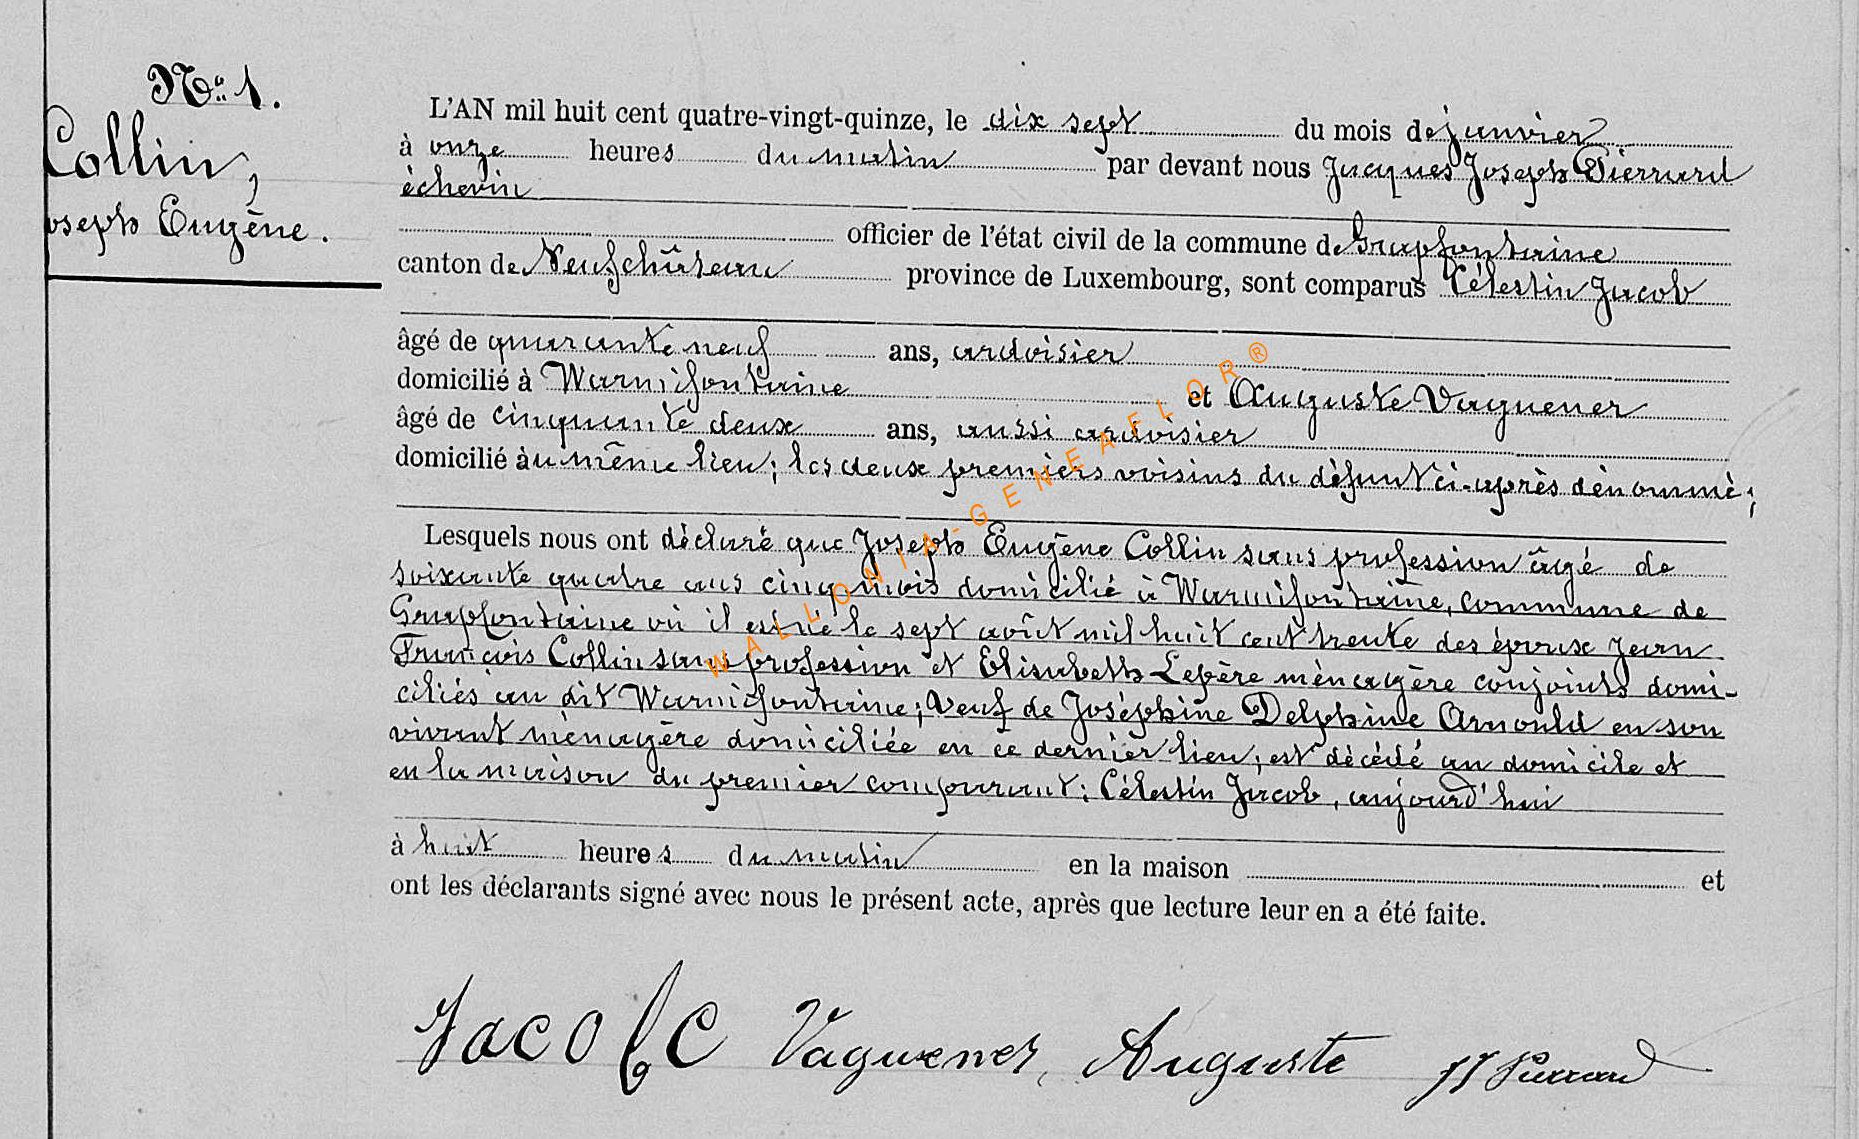 No. 1.
Collin,
oseph Eugène.
L'AN mil huit cent quatre-vingt-quinze, le dix sept du mois de janvier
à onze heures du matin par devant nous Jacques Joseph Pierrard
échevin
officier de l'état civil de la commune de Grapfontaine
canton de Neufchâteau province de Luxembourg, sont comparus Célestin Jacob
âgé de quarante neuf ans, ardoisier
domicilié à Warmifontaine et Auguste Vaguener
âgé de cinquante deux ans, aussi ardoisier
domicilié au même lieu; les deux premiers voisins du défunt ci-après dénommé;
Lesquels nous ont déclaré que Joseph Eugène Collin sans profession âgé de
soixante quatre ans cinq mois domicilié à Warmifontaine, commune de
Grapfontaine où il est né le sept août mil huit cent trente des époux Jean
François Collin sans profession et Elisabeth Lepère ménagère conjoints domi-
ciliés au dit Warmifontaine; Veuf de Joséphine Delphine Arnould en son
vivant ménagère domiciliée en ce dernier lieu; est décédé au domicile et
en la maison du premier comparant: Célestin Jacob, aujourd'hui
à huit heures du matin en la maison et
ont les déclarants signé avec nous le présent acte, après que lecture leur en a été faite.
Jacob C Vaguener, Auguste JJ Pierrard
WALLONIA-GENEAFLOR®